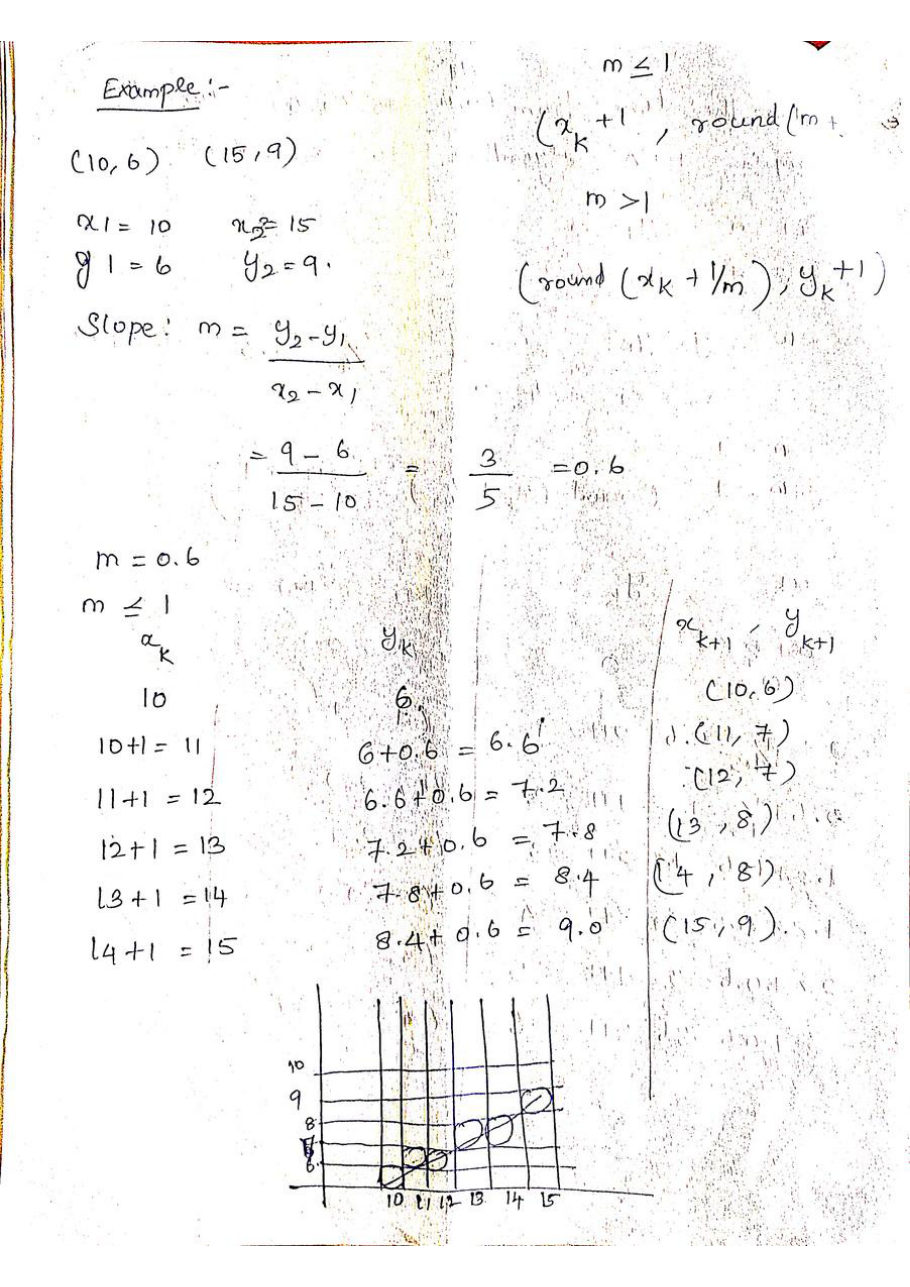 Example :-
(10, 6) (15, 9)
x1 = 10 x2 = 15
y1 = 6 y2 = 9.
Slope: m = y2 - y1
x2 - x1
= 9 - 6 = 3 = 0.6
15 - 10 5
m ≤ 1
(xk + 1 , round (m +
m > 1
(round (xk + 1/m), yk + 1)
m = 0.6
m ≤ 1
xk yk xk+1 , yk+1
10 6 (10, 6)
10+1 = 11 6+0.6 = 6.6 (11, 7)
11+1 = 12 6.6+0.6 = 7.2 (12, 7)
12+1 = 13 7.2+0.6 = 7.8 (13, 8)
13+1 = 14 7.8+0.6 = 8.4 (14, 8)
14+1 = 15 8.4+0.6 = 9.0 (15, 9)
10
9
8
7
6
10 11 12 13 14 15